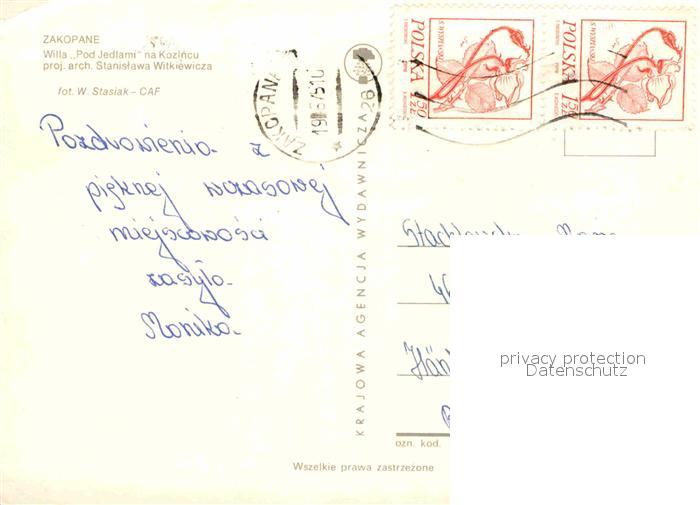 ZAKOPANE
Willa „Pod Jedlami" na Kozińcu
proj. arch. Stanisława Witkiewicza
fot. W. Stasiak – CAF
Pozdrowienia z
pięknej wczasowej
miejscowości
zasyła
Monika
KRAJOWA AGENCJA WYDAWNICZA
ZAKOPANE
POLSKA
1,50 ZŁ
S.WYSPIAŃSKI
POLSKA
1,50 ZŁ
S.WYSPIAŃSKI
ozn. kod.
Wszelkie prawa zastrzeżone
privacy protection
Datenschutz